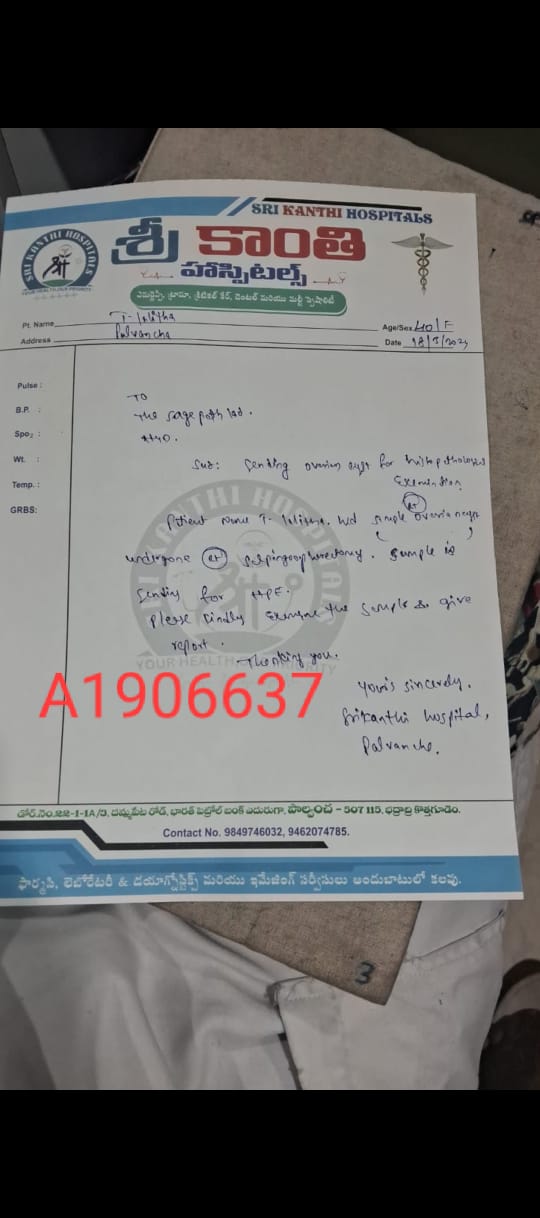 SRI KANTHI HOSPITALS
SRI KANTHI HOSPITALS
YOUR HEALTH, OUR PRIORITY
శ్రీ కాంతి
హాస్పిటల్స్
ఎమర్జెన్సీ, ట్రామా, క్రిటికల్ కేర్, డెంటల్ మరియు మల్టీ స్పెషాలిటీ
Pt. Name T- lalitha Age/Sex 40/F
Address Palvancha Date
Pulse :
B.P. :
Spo2 :
Wt. :
Temp. :
GRBS:
TO
The sagepath lab.
HYD.
Sub: Sending ovarian cyst for histopathological
Examination
Patient Name T- lalitha. had simple ovarian cyst
undergone salpingoophorectomy. Sample is
Sending for HPE.
Please kindly Examine the Sample & give
report.
Thanking you.
A1906637
Your's sincerely,
Srikanthi hospital,
Palvancha.
YOUR HEALTH, OUR PRIORITY
డోర్.నెం.22-1-1A/3, దమ్మపేట రోడ్, భారత్ పెట్రోల్ బంక్ ఎదురుగా, పాల్వంచ – 507 115. భద్రాద్రి కొత్తగూడెం.
Contact No. 9849746032, 9462074785.
ఫార్మసి, లెబోరేటరీ & డయాగ్నోస్టిక్స్ మరియు ఇమేజింగ్ సర్వీసులు అందుబాటులో కలవు.
3